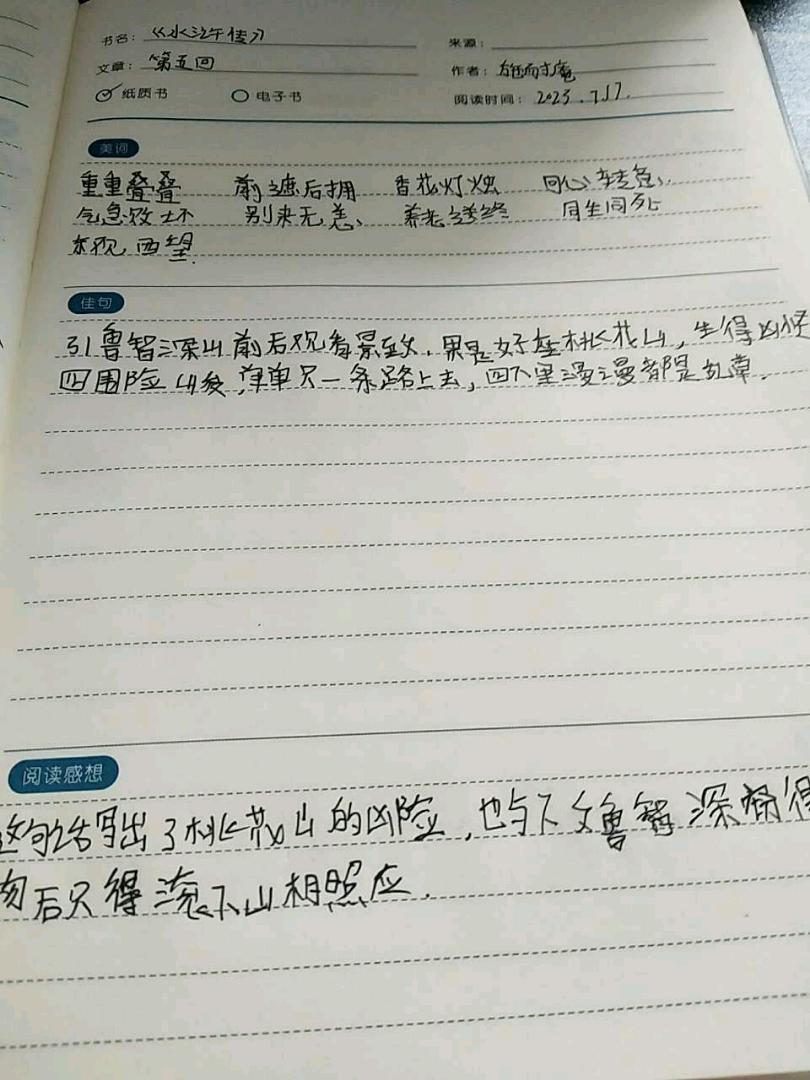 书名：《水浒传》 来源：
文章：第五回 作者：施耐庵
纸质书 电子书 阅读时间：2023.7.17.
美词
重重叠叠 前遮后拥 香花灯烛 回心转意
气急败坏 别来无恙 养老送终 同生同死
东观西望
佳句
引鲁智深山前后观看景致，果是好座桃花山，生得凶怪
四围险峻，单单只一条路上去，四下里漫漫都是乱草。
阅读感想
这句话写出了桃花山的凶险，也与下文鲁智深 得
后只得滚下山相照应。